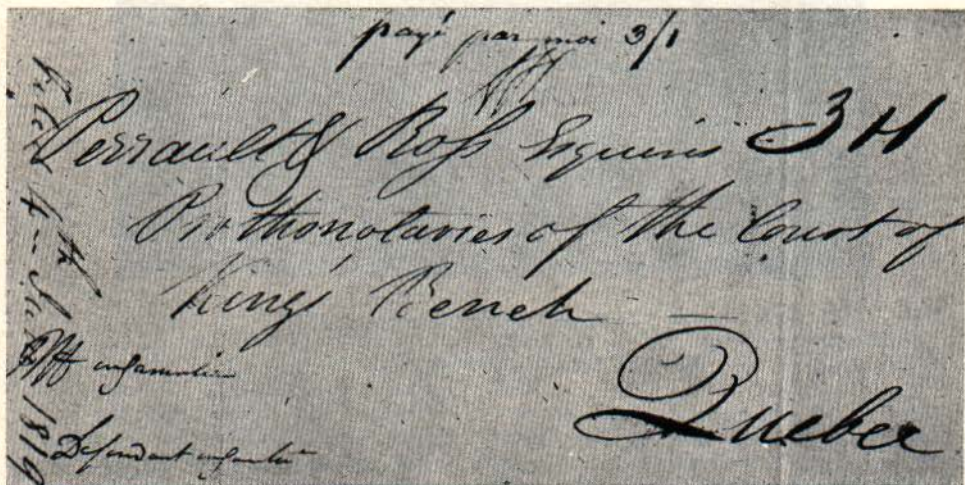 payé par moi 3/1
Perrault & Ross Esquires 3 H
Prothonotaries of the Court of
King's Bench
Quebec
Filed 4th 1819
Defendant